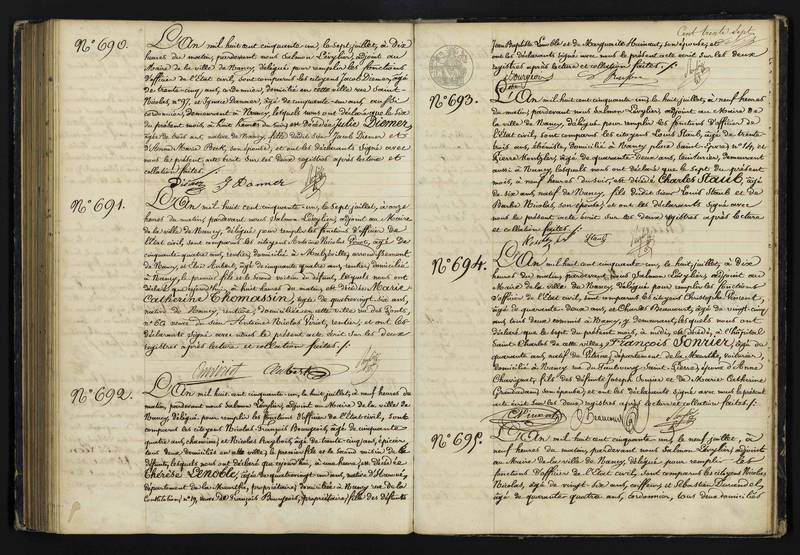 N° 690.
L'An mil huit cent cinquante-un, le sept juillet, à dix
heures du matin, pardevant nous Salomon Lévylier, adjoint au
Maire de la ville de Nancy, délégué pour remplir les fonctions
d'officier de l'état civil, sont comparus les citoyens Jacob Diemer, âgé
de trente-cinq ans, cordonnier, domicilié en cette ville rue Saint-
Nicolas, n° 97, et Ignace Danner, âgé de cinquante-un ans, aussi
cordonnier, demeurant à Nancy, lesquels nous ont déclaré que le six
du présent mois, à huit heures du soir, est décédée Julie Diemer,
âgée de trois ans, native de Nancy, fille dudit sieur Jacob Diemer et
d'Anne Marie Beck, son épouse, et ont les déclarants signé avec
nous le présent acte écrit sur les deux registres après lecture et
collation faites.
Diemer J Danner
N° 691.
L'An mil huit cent cinquante-un, le sept juillet, à onze
heures du matin, pardevant nous Salomon Lévylier, adjoint au Maire
de la ville de Nancy, délégué pour remplir les fonctions d'officier de
l'état civil, sont comparus les citoyens Antoine Nicolas, âgé de
cinquante-quatre ans, rentier, domicilié à Malzéville, arrondissement
de Nancy, et Aubert, âgé de cinquante quatre ans, rentier, domicilié
à Nancy, le premier fils et le second voisin du défunt, lesquels nous ont
déclaré que aujourd'hui, à huit heures du matin, est décédée Marie
Catherine Thomassin, âgée de quatrevingt six ans,
native de Nancy, rentière, domiciliée en cette ville rue des Ponts,
n° veuve du sieur Antoine Nicolas, rentier, et ont les
déclarants signé avec nous le présent acte écrit sur les deux
registres après lecture et collation faites.
Aubert
N° 692.
L'An mil huit cent cinquante-un, le huit juillet, à neuf heures du
matin, pardevant nous Salomon Lévylier, adjoint au Maire de la ville de
Nancy, délégué pour remplir les fonctions d'officier de l'état civil, sont
comparus les citoyens Nicolas François Bourgeois, âgé de cinquante
quatre ans, et Nicolas, âgé de trente-cinq ans, épicier,
tous deux domiciliés en cette ville, le premier fils et le second voisin de la
défunte, lesquels nous ont déclaré que à une heure, est décédée
Thérèse Lenoble, âgée de quatrevingt ans, native d'
département de la Meurthe, propriétaire, domiciliée à Nancy rue de la
Constitution, n° 19, veuve de François Bourgeois, propriétaire, fille des défunts
Cent trente sept
Jean Baptiste Lenoble et de Marguerite, son épouse, et
ont les déclarants signé avec nous le présent acte écrit sur les deux
registres après lecture et collation faites.
Bourgeois
N° 693.
L'An mil huit cent cinquante-un, le huit juillet, à neuf heures
du matin, pardevant nous Salomon Lévylier, adjoint au Maire de
la ville de Nancy, délégué pour remplir les fonctions d'officier de
l'état civil, sont comparus les citoyens Louis Staub, âgé de trente
trois ans, ébéniste, domicilié à Nancy place Saint-Epvre, n° 14, et
Pierre, âgé de quarante deux ans, teinturier, demeurant
aussi à Nancy, lesquels nous ont déclaré que le sept du présent
mois, à neuf heures du soir, est décédé Charles Staub, âgé
de six ans, natif de Nancy, fils dudit sieur Louis Staub et de
Barbe Nicolas, son épouse, et ont les déclarants signé avec
nous le présent acte écrit sur les deux registres après lecture
et collation faites.
Staub
N° 694.
L'An mil huit cent cinquante-un, le huit juillet, à dix
heures du matin, pardevant nous Salomon Lévylier, adjoint au
Maire de la ville de Nancy, délégué pour remplir les fonctions
d'officier de l'état civil, sont comparus les citoyens Christophe,
âgé de quarante-deux ans, et Charles Beauvent, âgé de vingt-cinq
ans, tous deux commis à Nancy, y demeurant, lesquels nous ont
déclaré que le sept du présent mois, à midi, est décédé, à l'hôpital
Saint Charles de cette ville, François Sonrier, âgé de
quarante ans, natif de, département de la Meurthe, voiturier,
domicilié à Nancy rue du Faubourg Saint-Pierre, époux d'Anne
Chavignet, fils des défunts Joseph Sonrier et de Marie Catherine
son épouse, et ont les déclarants signé avec nous le présent
acte écrit sur les deux registres après lecture et collation faites.
N° 695.
L'An mil huit cent cinquante-un, le neuf juillet, à
neuf heures du matin, pardevant nous Salomon Lévylier, adjoint
au Maire de la ville de Nancy, délégué pour remplir les
fonctions d'officier de l'état civil, sont comparus les citoyens Nicolas
Nicolas, âgé de vingt-six ans, coiffeur, et Sébastien,
âgé de quarante quatre ans, cordonnier, tous deux domiciliés